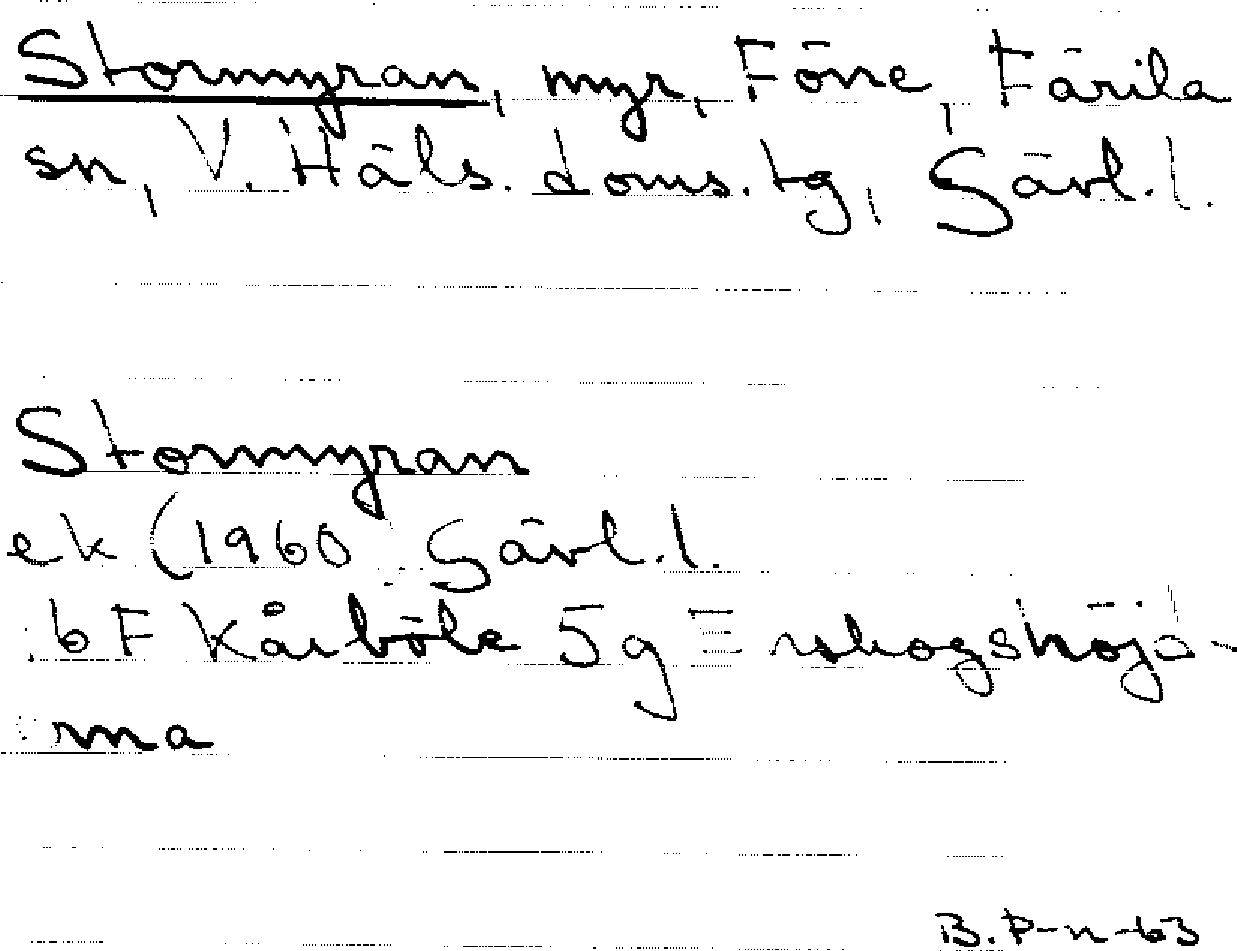 Stormyran, myr, Föne, Färila
sn, V. Häls. doms. tg, Gävl. l.
Stormyran
ek (1960 Gävl. l.
16 F Kårböle 5 g
rna
B. P-n-63